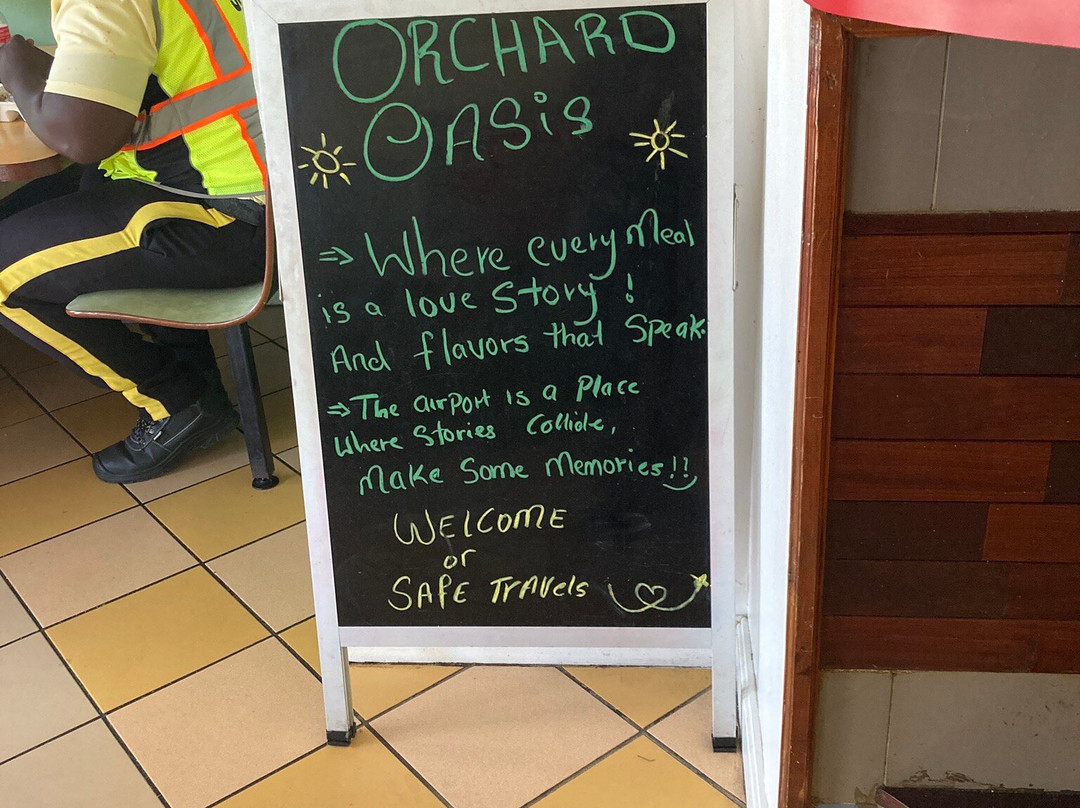 ORCHARD
OASiS
⇒ Where every Meal
is a love Story !
And flavors that Speak.
⇒ The airport is a Place
Where Stories Collide,
Make Some Memories!!
WELCOME
or
SAFE TrAvels